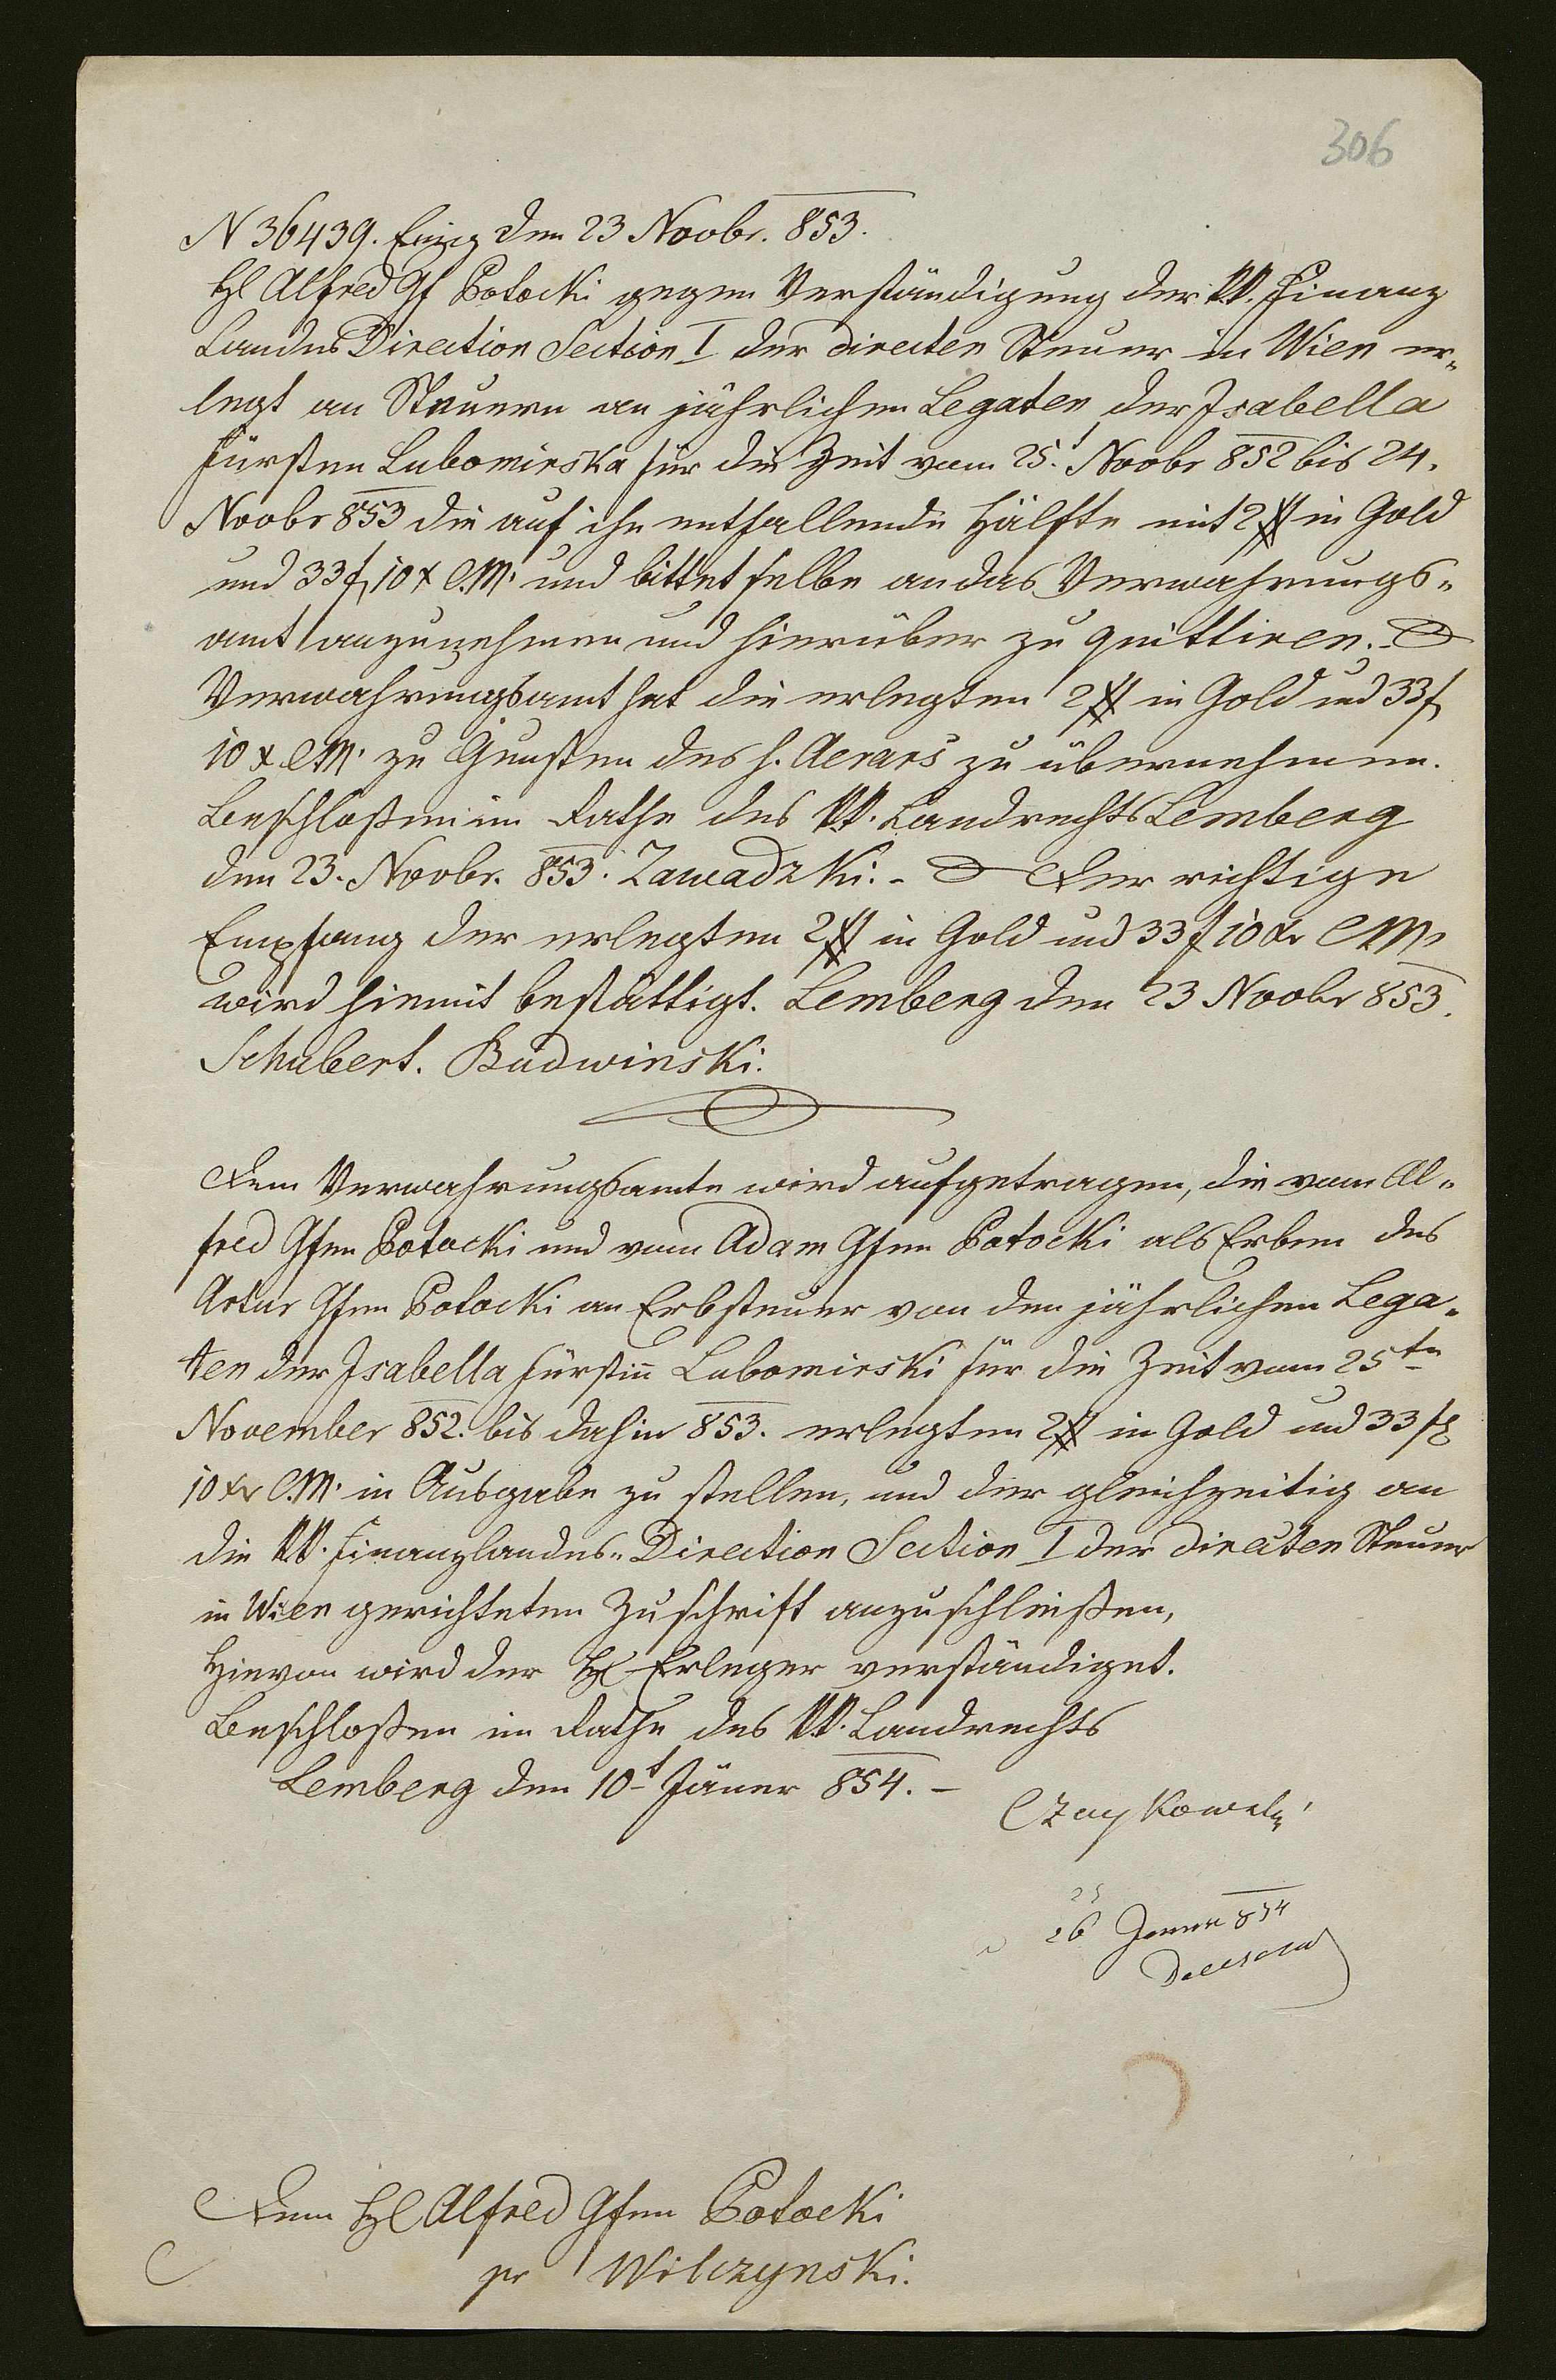 306
N 36439. Eing den 23 Novbr. 853.
H Alfred Gf Potocki gegen Verständigung der k.k. Finanz
Landes Direction Section I der directen Steuer in Wien er-
legt an Steuern an jährlichen Legaten der Isabella
Fürsten Lubomirska für die Zeit vom 25.t Novbr 852 bis 24.
Novbr 853 die auf ihn entfallende Hälfte mit 2 # in Gold
und 33 f 10 x C.M. und bittet selbe an das Verwahrungs-
amt anzunehmen und hierüber zu quittiren. -
Verwahrungsamt hat die erlegten 2 # in Gold und 33 f
10 x CM. zu Gunsten des h. Aerars zu übernehmen.
Beschloßen im Rathe des k.k. Landrechts Lemberg
den 23. Novbr. 853. Zawadzki. - Der richtige
Empfang der erlegten 2 # in Gold und 33 f 10 xr CM.
wird hiemit bestättigt. Lemberg den 23 Novbr 853.
Schubert. Budwinski.
Dem Verwahrungsamte wird aufgetragen, die vom Al-
fred Gfen Potocki und vom Adam Gfen Potocki als Erben des
Artur Gfen Potocki an Erbsteuer von den jährlichen Lega-
ten der Isabella Fürstin Lubomirski für die Zeit vom 25ten
November 852. bis dahin 853. erlegten 2 # in Gold und 33 f
10 xr C.M. in Ausgabe zu stellen, und der gleichzeitig an
die k.k. Finanzlandes-Direction Section I der directen Steuer
in Wien gerichteten Zuschrift anzuschließen,
Hievon wird der H Erleger verständiget.
Beschloßen im Rathe des k.k. Landrechts
Lemberg den 10-t Jäner 854. -
Czaykowski
25
26 Janner 854
Dem H Alfred Gfen Potocki
pr Wilczynski.